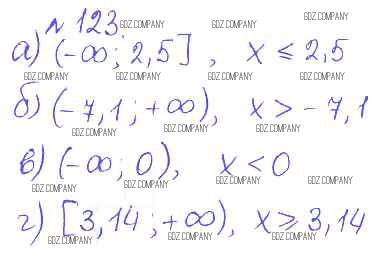 № 123.
GDZ.COMPANY GDZ.COMPANY GDZ.COMPANY
а) (-∞; 2,5], x ≤ 2,5
GDZ.COMPANY GDZ.COMPANY GDZ.COMPANY GDZ.COMPANY
б) (-7,1; +∞), x > -7,1
GDZ.COMPANY GDZ.COMPANY
в) (-∞; 0), x < 0
GDZ.COMPANY GDZ.COMPANY GDZ.COMPANY GDZ.COMPANY
г) [3,14; +∞), x ⩾ 3,14
GDZ.COMPANY GDZ.COMPANY GDZ.COMPANY